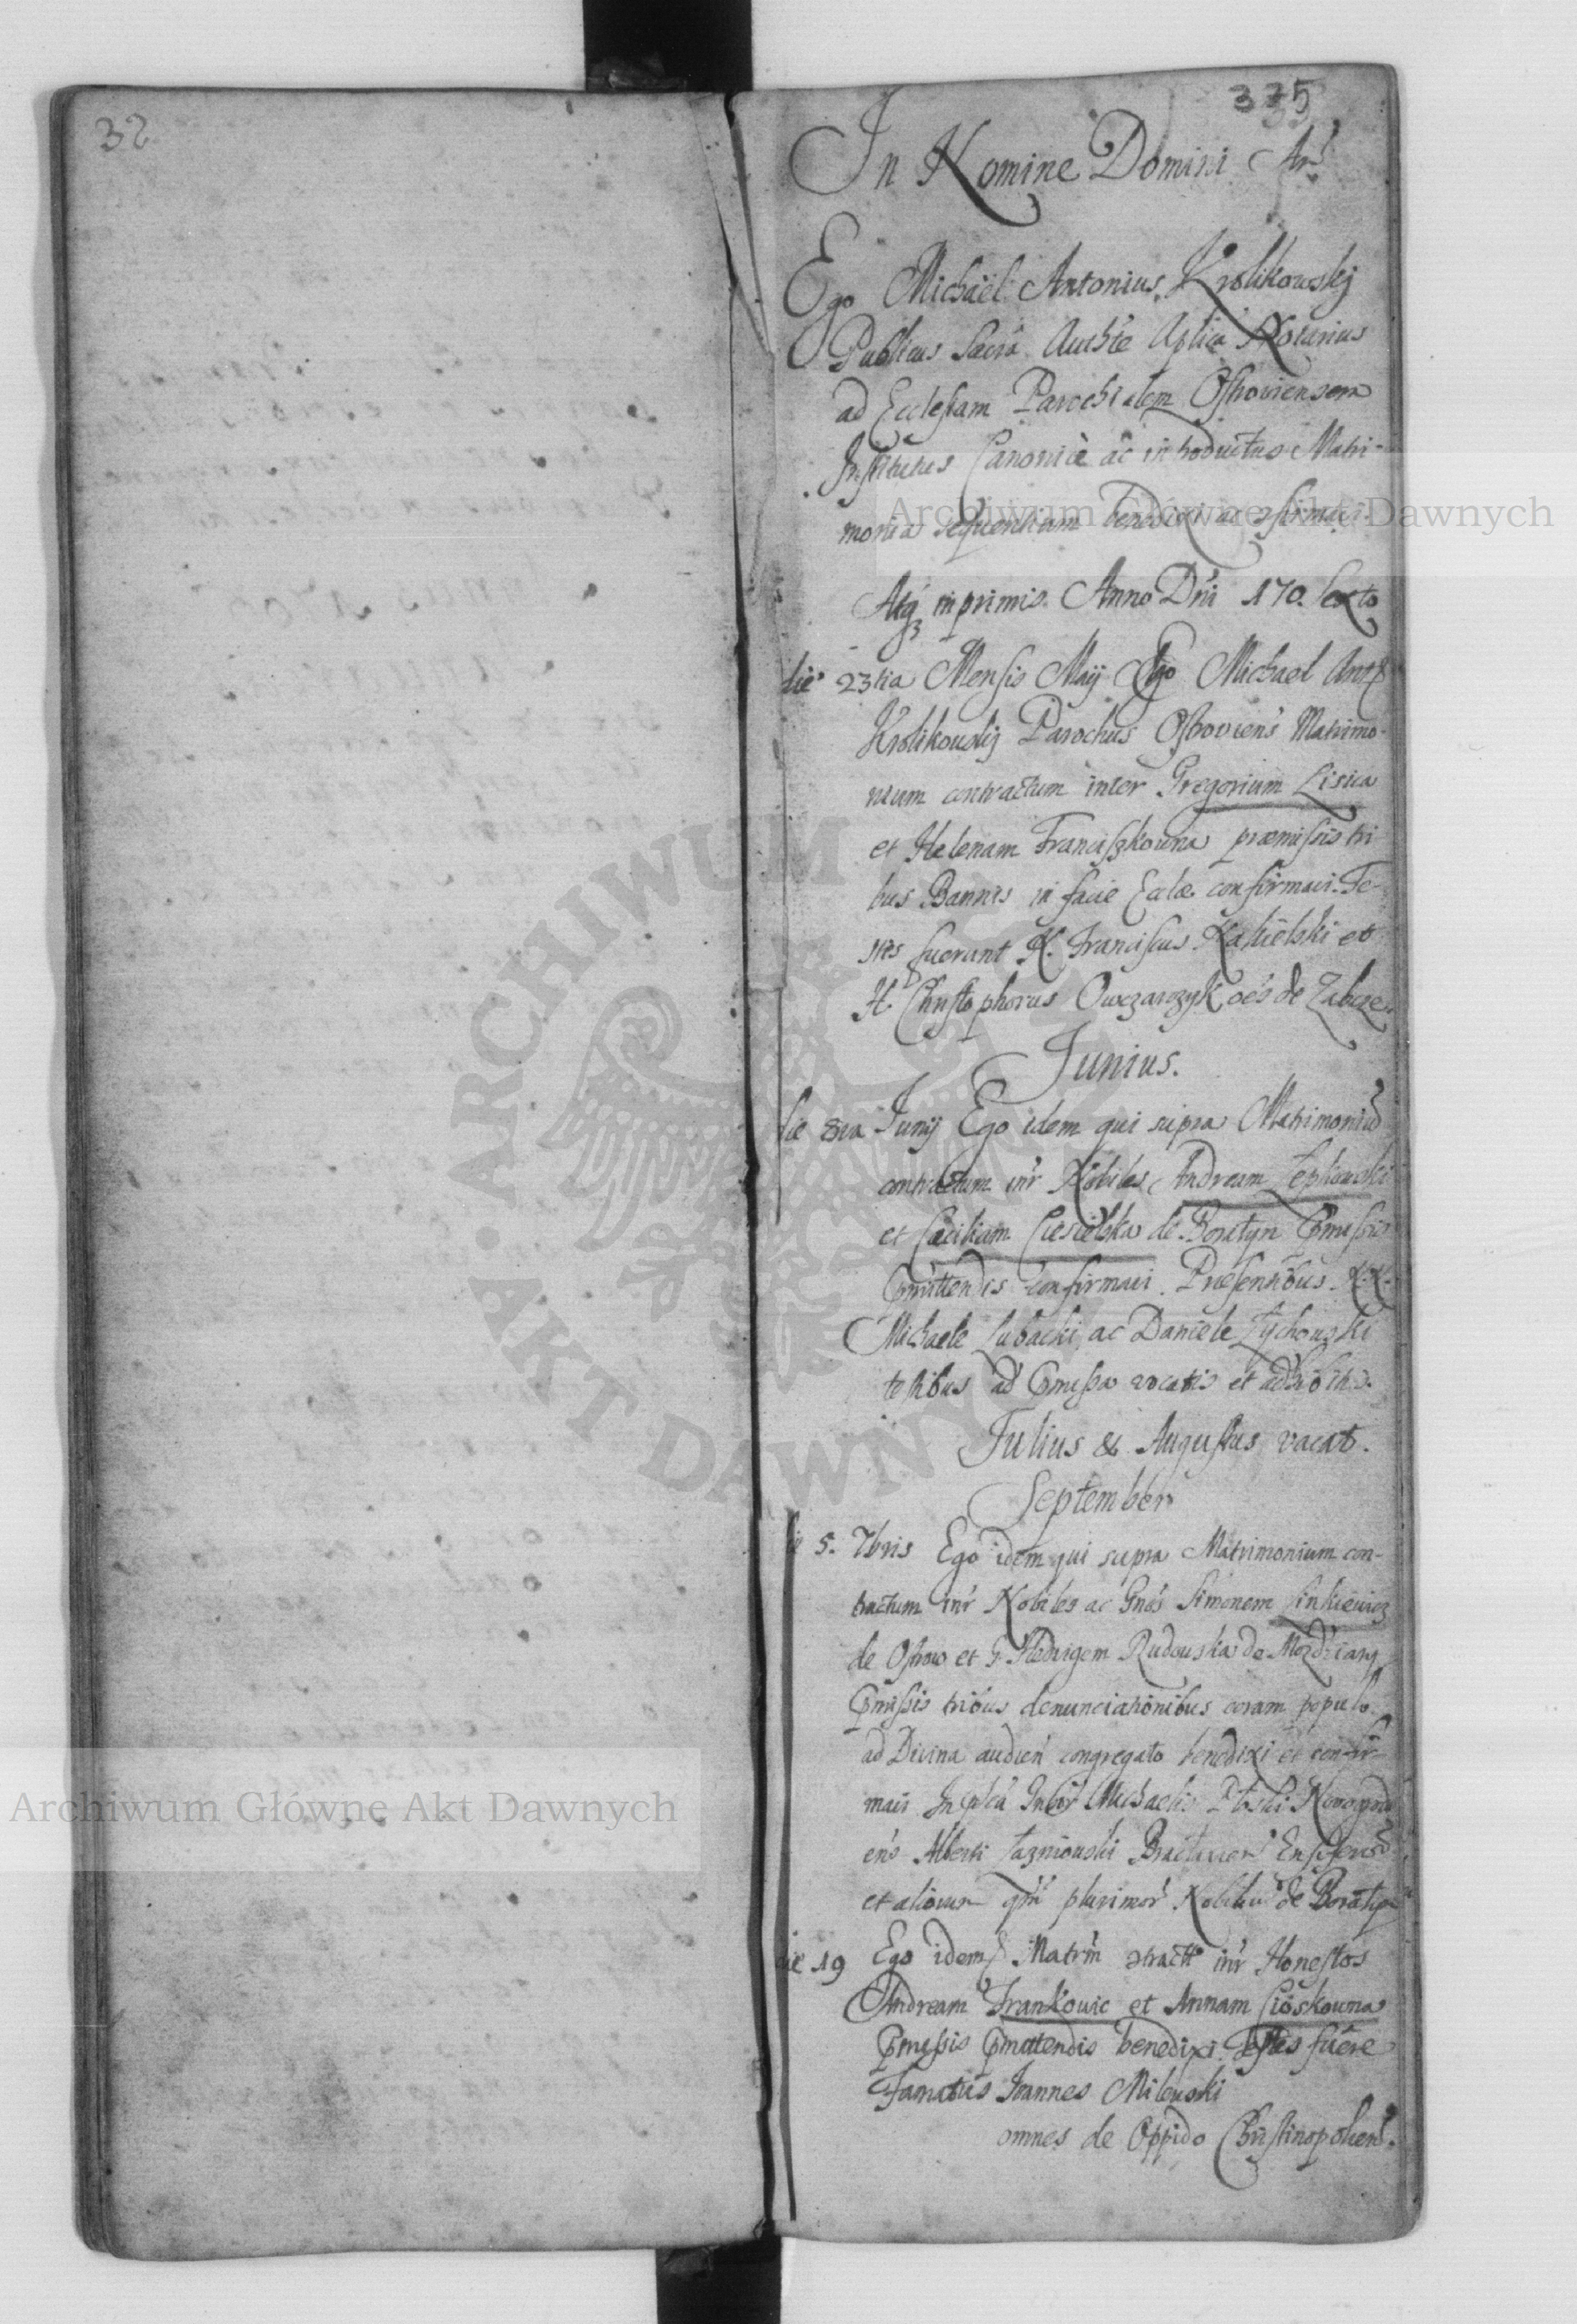 32
335
In Nomine Domini Am̃
Ego Michaël Antonius Krolikowskj
Publicus Sacra Authte Aplica Notarius
ad Ecclesiam Parochialem Ostroviensem
Institutus Canonice ac introductus Matri-
monia sequentium benedixi ac confirmavi
Atq inprimis Anno Dni 170. sexto
die 23tia Mensis Maij Ego Michael Ant
Krolikowskj Parochus Ostroviens Matrimo-
nium contractum inter Gregorium Lisica
et Helenam Franciszkowna præmissis tri-
bus Bannis in facie Eccla confirmavi. Te-
stes fuerunt H. Franciscus et
H. Christophorus Owczarczyk oēs de Zabcze.
Junius.
die 8va Junij Ego idem qui supra Matrimoniū
contractum intr Nobiles Andream Lepkowski
et Cæciliam Ciesielska de Boratyn pmissis
pmittendis confirmavi. Præsentibus N.N.
Michaele Lubacki, ac Daniele Zychowski
testibus ad pmissa vocatis et adhibitis.
Julius & Augustus vacat.
September
die 5. 7bris Ego idem qui supra Matrimonium con-
tractum intr Nobiles ac Gnos Simonem Sinkiewicz
de Ostrow et G. Hedvigem Rudowska de
pmissis tribus denunciationibus coram populo
ad Divina audien congregato benedixi et confir-
mavi In Michaelis
ens Alberti Braclavien Ensiferod
et aliorum qm plurimor Nobiliu de Boratyn
die 19 Ego idem Matrm ctractu intr Honestos
Andream Frankowic et Annam Cioskowna
pmissis pmittendis benedixi. Testes fuere
Famatus Ioannes Milewski
omnes de Oppido Christinopolien.
Archiwum Główne Akt Dawnych
Archiwum Główne Akt Dawnych
ARCHIWUM
AKT DAWNYCH